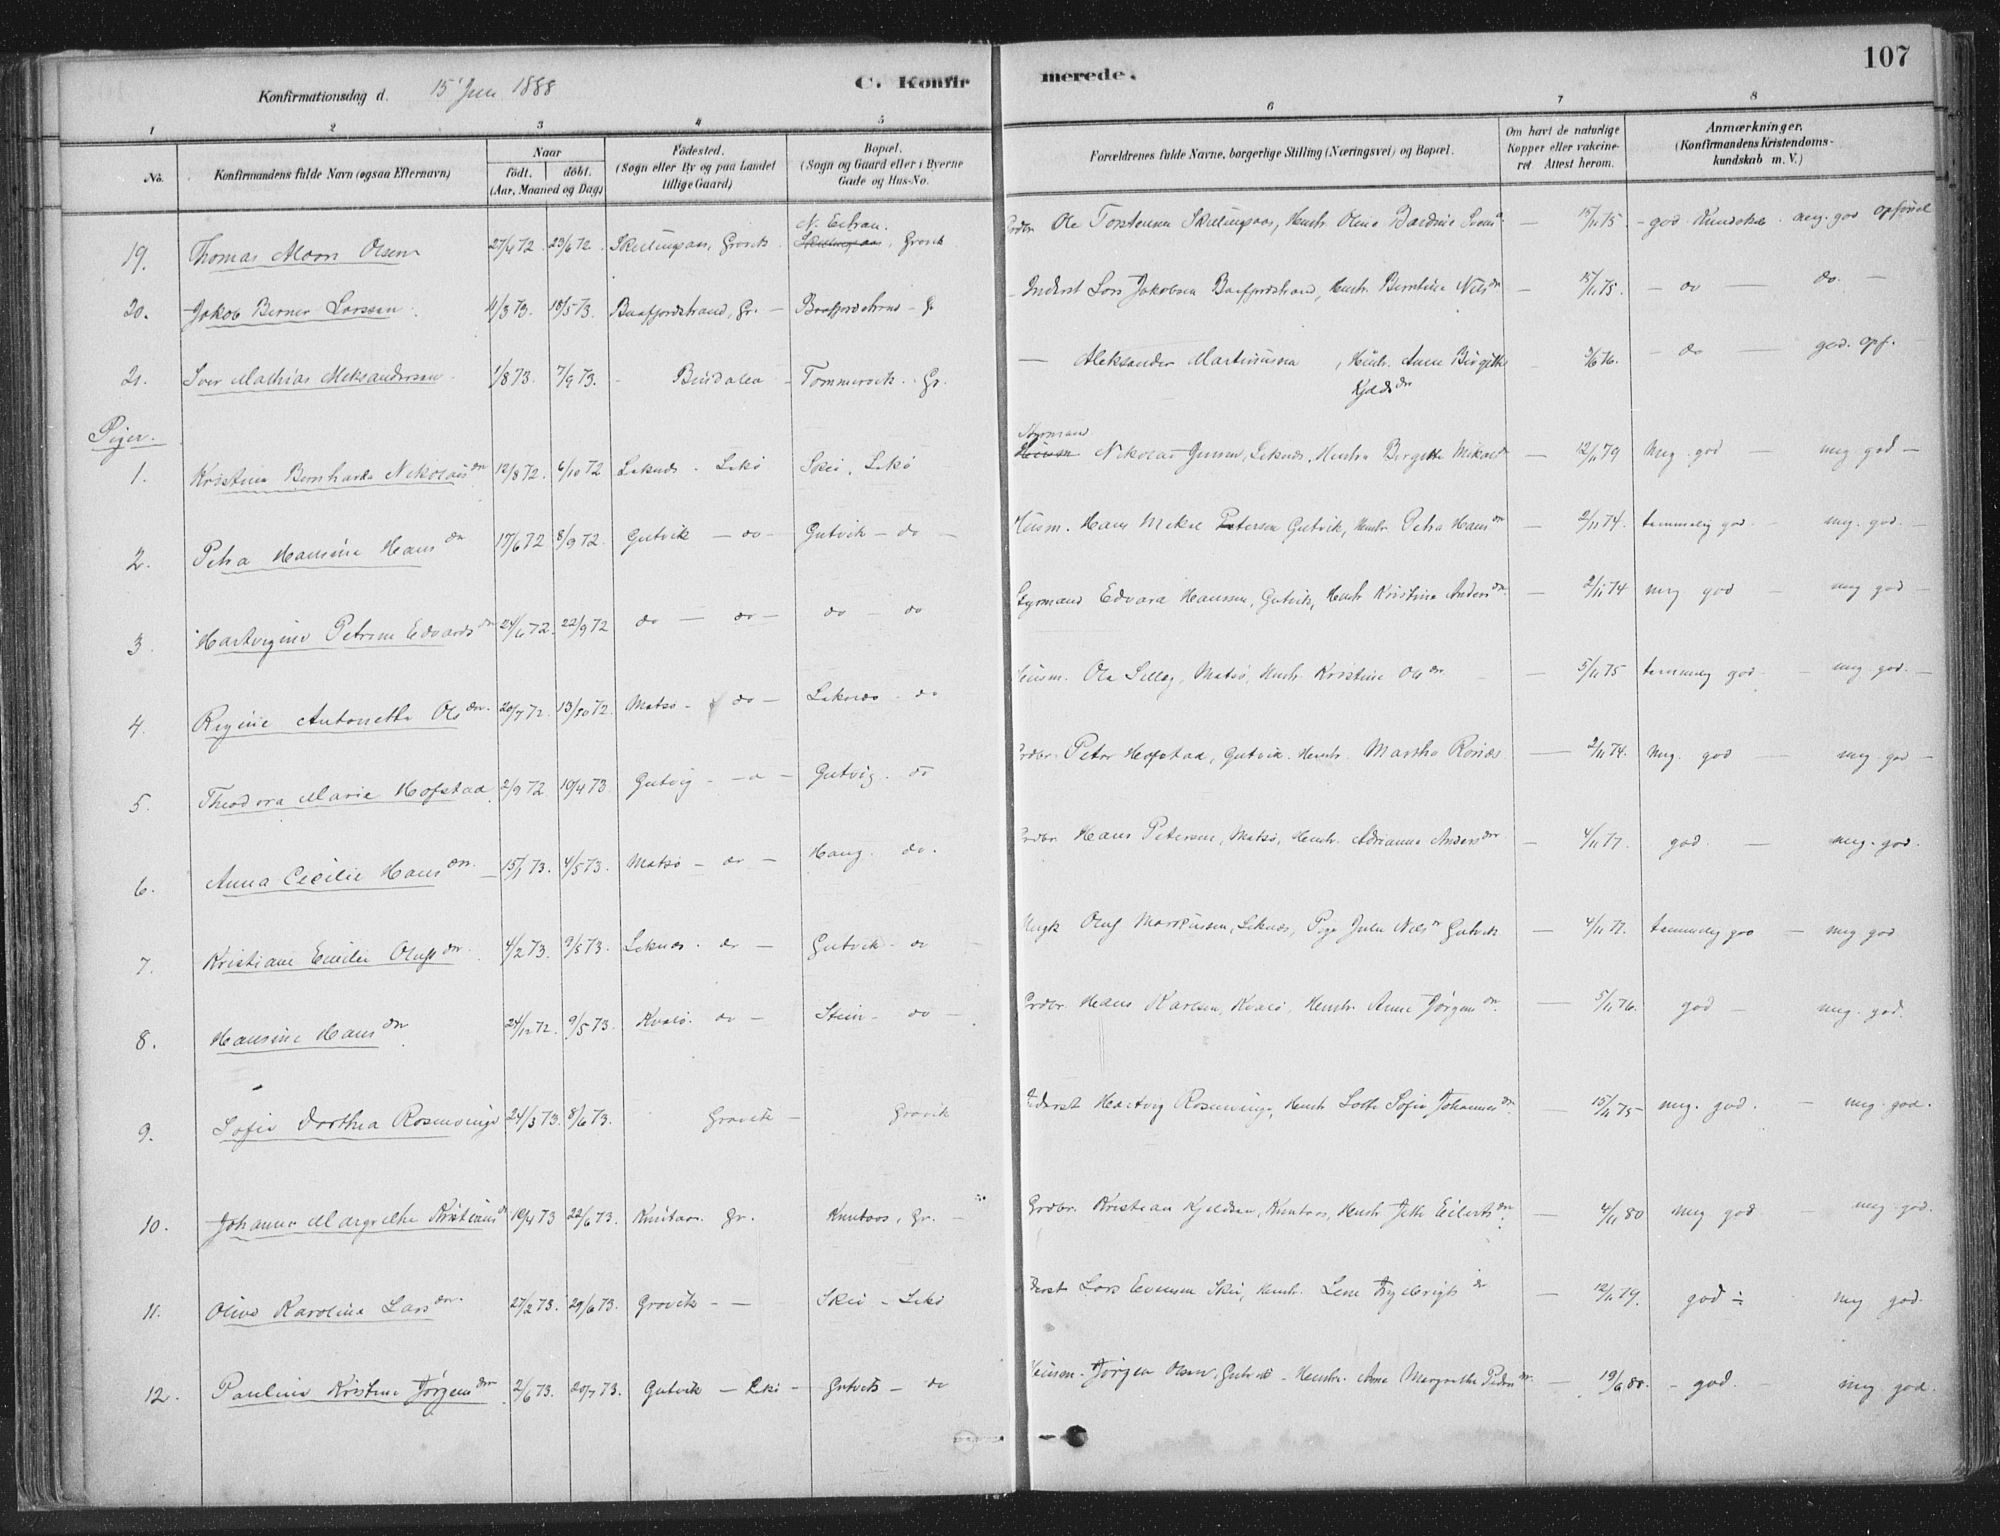 107
Konfirmationsdag d. 15 1888
C. Konfirmerede.
1 2 3 4 5 6 7 8
No.
Konfirmandens fulde Navn (ogsaa Efternavn)
Naar
födt. döbt.
(Aar, Maaned og Dag)
Födested.
(Sogn eller By og paa Landet
tillige Gaard)
Bopæl.
(Sogn og Gaard eller i Byerne
Gade og Hus-No.
Forældrenes fulde Navne, borgerlige Stilling (Næringsvei) og Bopæl.
Om havt de naturlige
Kopper eller vakcine-
ret. Attest herom.
Anmærkninger.
(Konfirmandens Kristendoms-
kundskab m. V.)
19. Thomas Moon Olsen 27/4 72 23/6 72 Skillingsaas, Gravik Skillingsaas, Gravik Ole Torstensen Skillingsaas, Hustr. Oline 15/11 75 - god Kundskab meg. god opförsel
20. Jakob Berner Larssen 4/3 73. 18/5 73. Gr. - Gr. Inderst Lars Jakobsen Hustr. Berntine Nilsdr — 15/11 75. - do — do. —
21. Iver Mathias Aleksandersen 1/8 73. 7/9 73. - Bindalen - Tommervik. Gr. — Aleksander Martinussen, Hustr. Anne Birgitte Kjeldsdr - 76. - do — god. opf. -
Piger.
1. Kristine Bernharda Nikolaisdr 12/8 72. 6/10 72 Leknes - Lekö Skei, Lekö Styrmand Nikolai Jensen, Leknes, Hustru Birgitte Mikaelsdr — 12/11 79 Meg. god — meg god —
2. Petra Hansine Hansdr 17/6 72 8/9 72. Gutvik — do - Gutvik — do — Husm. Hans Mikal Petersen Gutvik, Hustr. Petra Hansdr — 2/11 74. temmelig god - meg. god.
3. Hartvigine Petrine Edvardsdr 24/6 72. 22/9 72 do — do — do — do Styrmand Edvard Hanssen, Gutvik, Hustr Kristine Andersdr — 2/11 74 meg god — meg god —
4. Regine Antonette Olsdr. 20/7 72. 13/10 72. Matsö - do — Leknes - do Husm. Ole Matsö, Hustr. Kristine Olsdr — 5/11 75 temmelig god - meg. god. —
5. Theodora Marie Hofstad 2/9 72 19/4 73. Gutvig - do - Gutvig. do Grdbr. Peter Hofstad, Gutvik. Hustr. Martha — 2/11 74. Meg. god — meg. god —
6. Anna Cecilie Hansdr. 15/1 73. 4/5 73. Matsö — do — Haug. do. Grdbr. Hans Petersen, Matsö, Hustr. Adrianna Andersdr — 4/11 77. god. — meg. god.
7. Kristiane Emilie Olufsdr. 4/2 73. 9/5 73. Leknes. do — Gutvik - do Ungk. Oluf Markussen, Leknes, Pige Nilsdr Gutvik — 4/11 77. temmelig god — meg god
8. Hansine Hansdr 24/12 72. 9/5 73. Kvalö. do — Stein - do - Grdbr. Hans Karlsen, Kvalö, Hustr. Anne Jörgensdr — 5/11 76. god — meg. god.
9. Sofie Dorthea Rosenvinge 24/3 73. 8/6 73. Gravik — Gravik Inderst Hartvig Rosenvinge, Hustr Sofie Johannesdr — 15/11 75 meg. god. — meg. god.
10. Johanna Margrethe Kristiansdr 10/4 73 22/6 73. Knutaas. Gr. Knutaas, Gr. — Grdbr. Kristian Kjeldsen, Knutaas, Hustr Jette Eilertsdr — 4/11 80 meg god — meg. god.
11. Olive Karoline Larsdr. 27/2 73. 29/6 73. Gravik - — Skei - Lekö Inderst Lars Evensen Skei, Hustr. Lene — 12/11 79. god - meg god.
12. Pauline Kristine Jörgensdr 2/6 73. 20/7 73. Gutvik — Lekö - Gutvik — do Husm. Jörgen Olsen, Gutvik - Hustr. Anne Margrethe Pedersdr — 19/6 80. - god. — meg god.